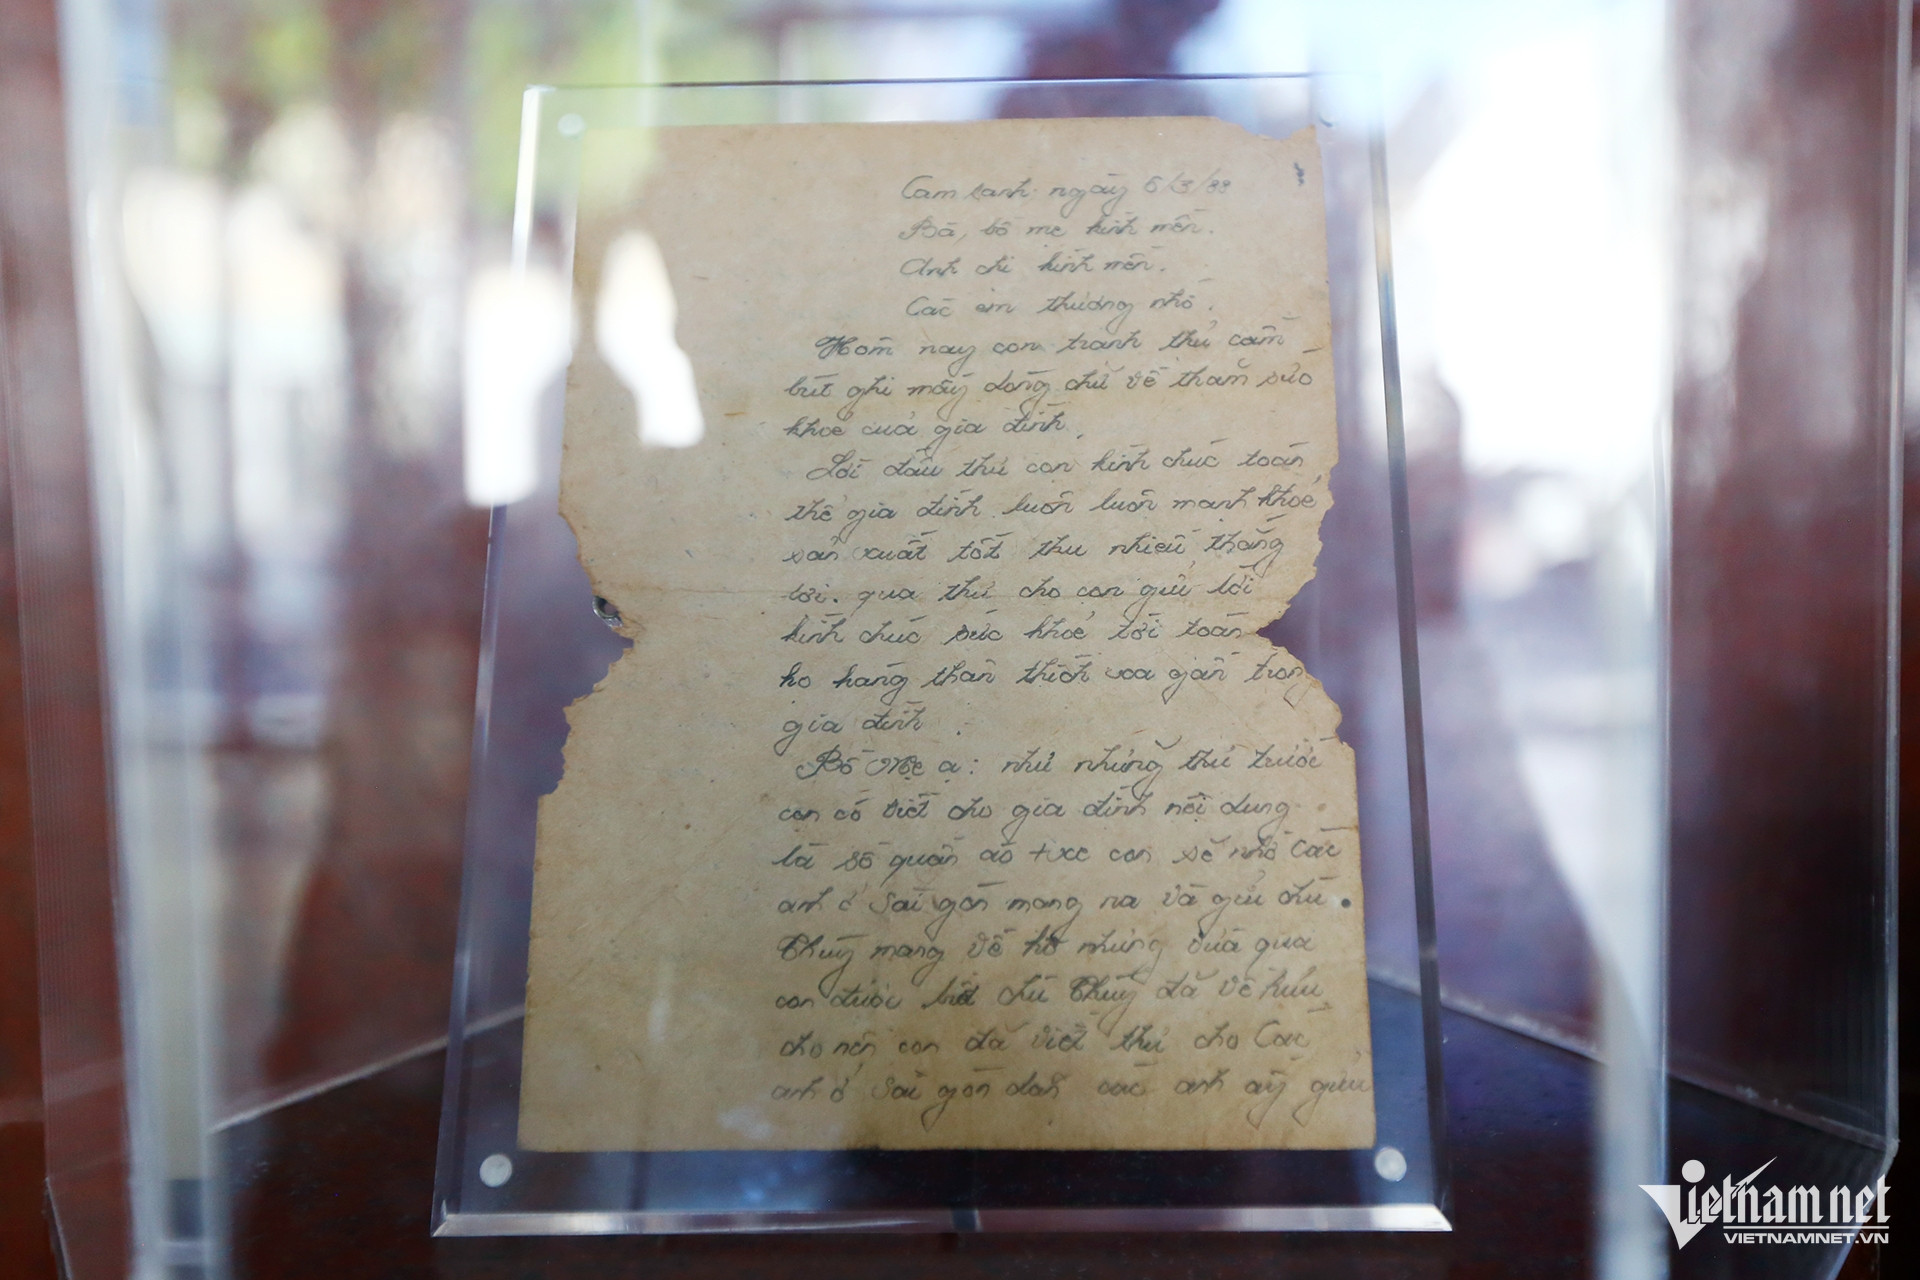 Cam ranh ngày 6/3/88
Bà, bố mẹ kính mến.
Anh chị kính mến.
Các em thương nhớ.
Hôm nay con tranh thủ cầm
bút ghi mấy dòng chữ về thăm sức
khoẻ của gia đình.
Lời đầu thư con kính chúc toàn
thể gia đình luôn luôn mạnh khoẻ
sản xuất tốt thu nhiều thắng
lợi. qua thư cho con gửi lời
kính chúc sức khoẻ tới toàn
họ hàng thân thích xa gần trong
gia đình.
Bố Mẹ ạ: như những thư trước
con có viết cho gia đình nội dung
là số quần áo + xc con sẽ nhờ Các
anh ở Sài gòn mang ra và gửi chú
Thuỷ mang về hộ nhưng vừa qua
con được biết chú Thuỷ đã về hưu
cho nên con đã viết thư cho Các
anh ở Sài gòn các anh ấy gửi
Vietnamnet
VIETNAMNET.VN